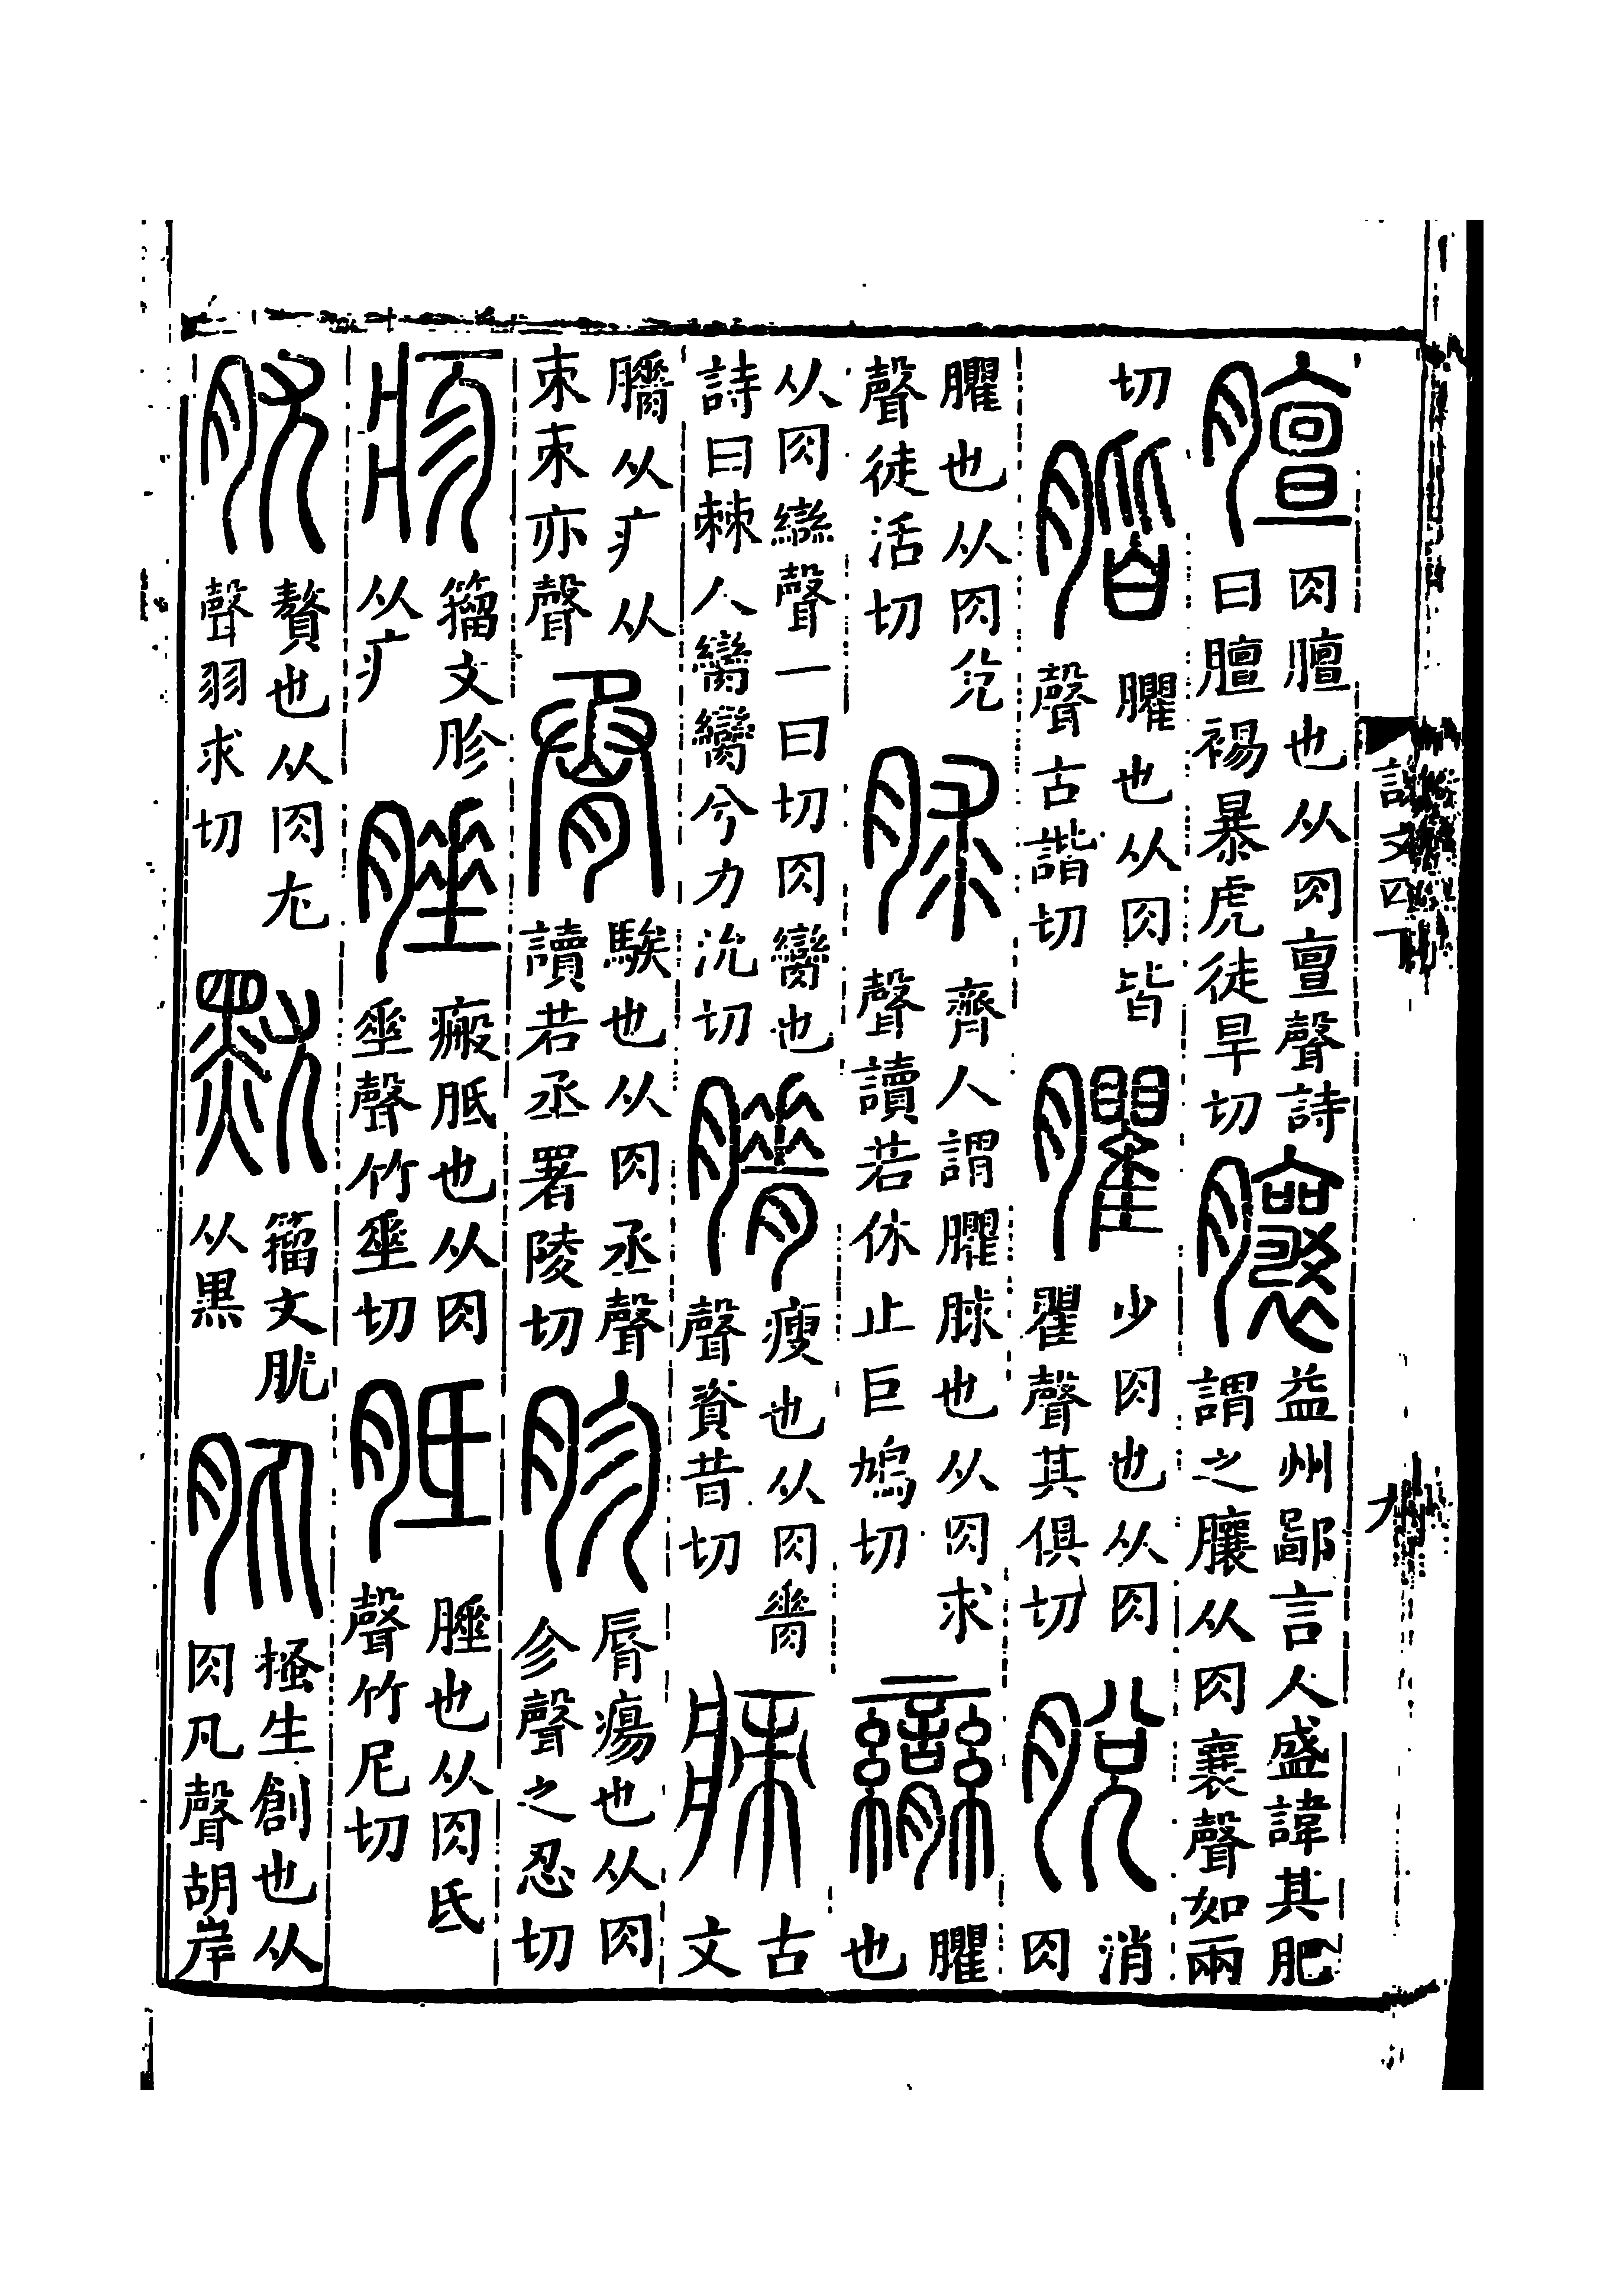 說文四下
九
膻肉膻也从肉亶聲詩曰膻裼暴虎徒旱切䑋益州鄙言人盛諱其肥謂之䑋从肉襄聲如兩
切腊臞也从肉皆聲古諧切臞少肉也从肉瞿聲其俱切脫消肉
臞也从肉兌聲徒活切脙齊人謂臞脙也从肉求聲讀若休止巨鳩切臠臞也
从肉䜌聲一曰切肉臠也詩曰棘人臠臠兮力沇切膌瘦也从肉脊聲資昔切𤷢古文
膌从疒从朿朿亦聲脀騃也从肉丞聲讀若丞署陵切胗脣瘍也从肉㐱聲之忍切
疹籒文胗从疒腄瘢胝也从肉垂聲竹垂切胝腄也从肉氐聲竹尼切
肬贅也从肉尢聲羽求切黕籒文肬从黒肒搔生創也从肉丸聲胡岸